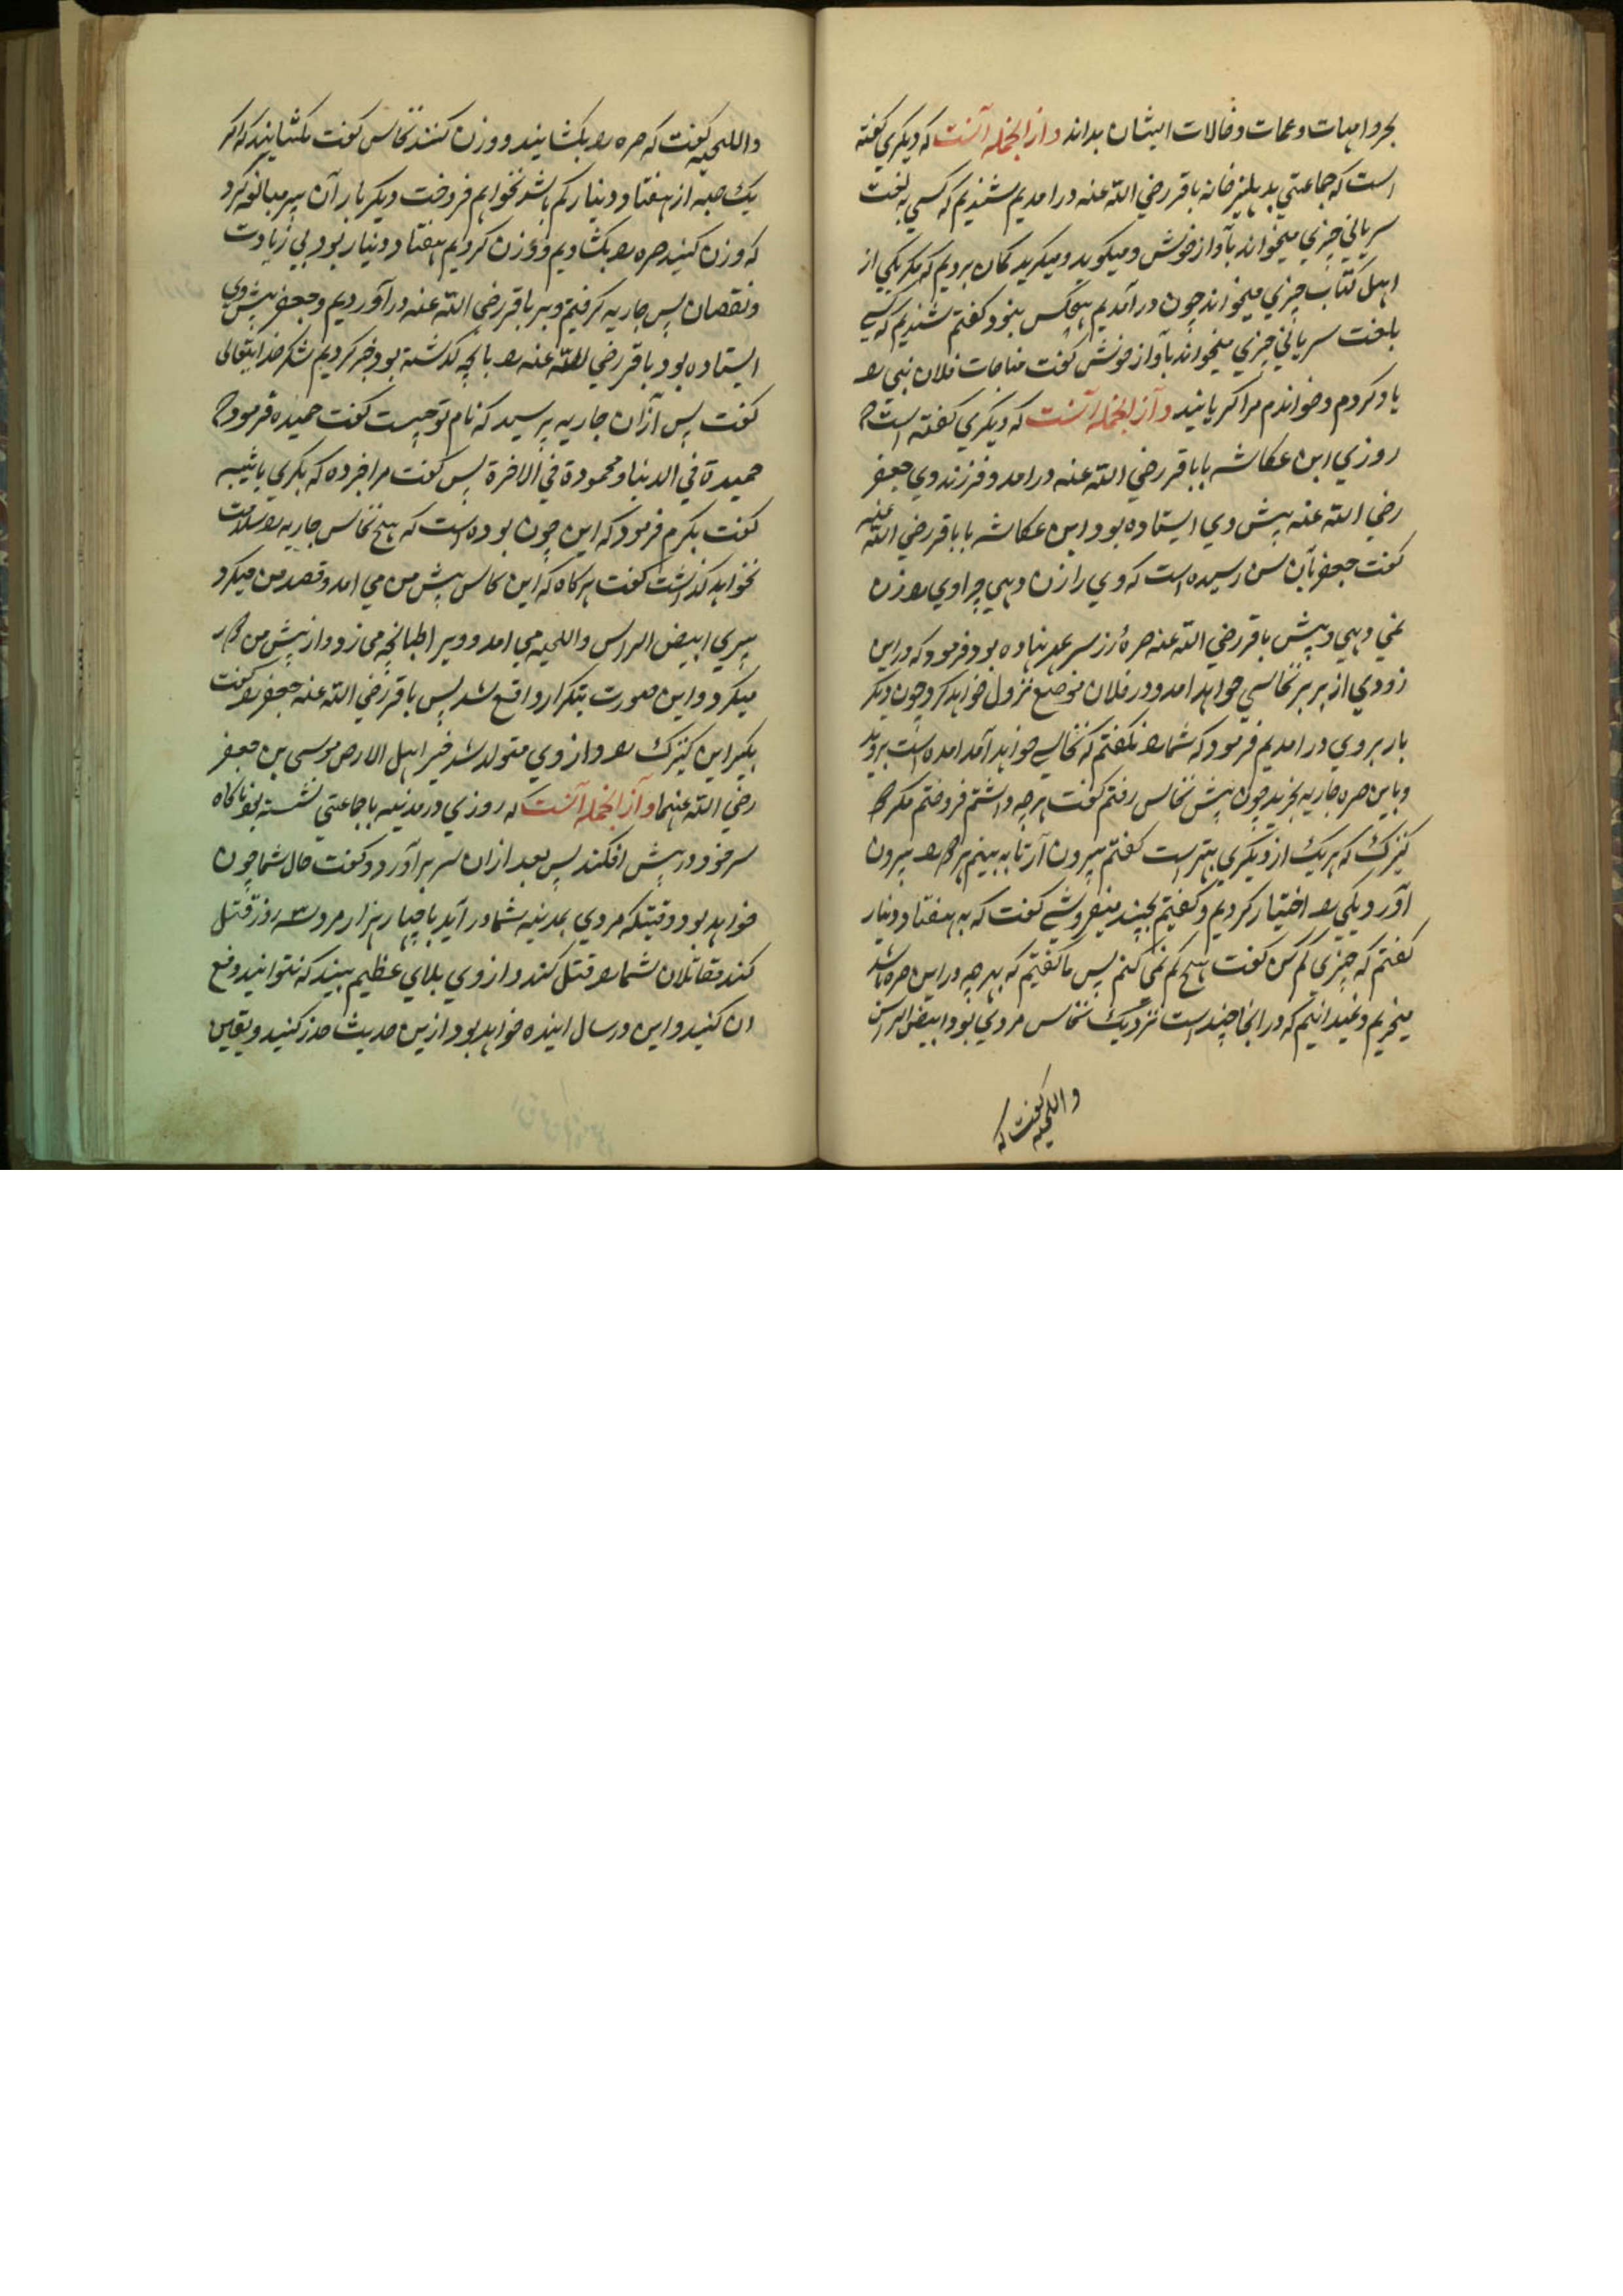 بحر واهبات و عمات و خالات ایشان بداند و از انجمله آنست که دیکری کفته
است که جماعتی بدهلیز خانه باقر رضي الله عنه در امدیم شنیدیم که کسی به لغت
سریاني چیزي میخواند بآواز خوش و میکوید و میکرید کمان بردیم که مکر یکي از
اهل کتاب چیزي میخواند چون در آمدیم هیچکس نبود کفتم شنیدیم که کسے
بلغت سریاني چیزي میخواند بآواز خوش کفت مناجات فلان نبی را
یاد کردم و خواندم مرا کریانید و از انجمله آنست که دیکري کفته است که
روزي ابن عکاشه با باقر رضي الله عنه در امد و فرزند وي جعفر
رضي الله عنه پیش وي ایستاده بود ابن عکاشه با باقر رضي الله عنه
کفت جعفر بآن سن رسیده است که وي را زن دهي چرا وي را زن
نمي دهي و پیش باقر رضي الله عنه صرهٔ زر سر بمهر نهاده بود فرمود که درین
زودي از بربر نخاسي خواهد امد و در فلان موضع نزول خواهد کرد چون دیکر
بار بروي در امدیم فرمود که شمارا نکفتم که نخاسے خواهد آمد امده است بروید
و باین صره جاریه بخرید چون پیش نخاس رفتم کفت هرچه داشتم فروختم مکر دو
کنیزک که هریک از دیکري بهتر است کفتم بیرون آر تا به بینم هر دو را بیرون
آورد یکي را اختیار کردیم و کفتیم بچند میفروشے کفت که به هفتاد دینار
کفتم که چیزي کم کن کفت هیچ کم نمي کنم پس ما کفتیم که بهر چه در این صره باشد
میخریم و نمیدانیم که در انجا چند است نزدیک نخاس مردي بود ابیض الراس
واللحیه کفت که
واللحیه کفت که صره را بکشایند و وزن کنند نخاس کفت مکشایید که اکر
یک حبه از هفتاد دینار کم باشد نخواهم فروخت دیکر بار آن پیر مبالغه کرد
که وزن کنید صره را بکشادیم و وزن کردیم هفتاد دینار بود بی زیادت
و نقصان پس جاریه کرفتیم و بر باقر رضي الله عنه در آوردیم و جعفر پیش وي
ایستاده بود باقر رضي الله عنه را با بچه کذشته بود خبر کردیم شکر خدایتعالی
کفت پس از آن جاریه پرسید که نام تو چیست کفت حمیده فرمود
حمیدة في الدنیا و محمودة في الاخرة پس کفت مرا خبر ده که بکري یا ثیبه
کفت بکرم فرمود که این چون بوده است که هیچ نخاس جاریه را سلامت
نخواهد کذاشت کفت هرکاه که این کاس پیش من مي امد و قصد من میکرد
پیري ابیض الراس واللحیه مي امد و ویرا طبانچه می زد و از پیش من دور
میکرد و این صورت بتکرار واقع شد پس باقر رضي الله عنه جعفر را کفت
بکیر این کنیزک را و از وي متولد شد خیر اهل الارض موسی بن جعفر
رضي الله عنهما و از انجمله آنست که روزي در مدینه با جماعتي نشسته بود ناکاه
سر خود در پیش افکند پس بعد از ان سر برآورد و کفت حال شما چون
خواهد بود وقتیکه مردي بمدینه شما در آید با چهار هزار مرد سه روز قتل
کند مقاتلان شمارا قتل کند و از وي بلاي عظیم بینید که نتوانید دفع
ان کنید و این در سال اینده خواهد بود ازین حدیث حذر کنید و یقین